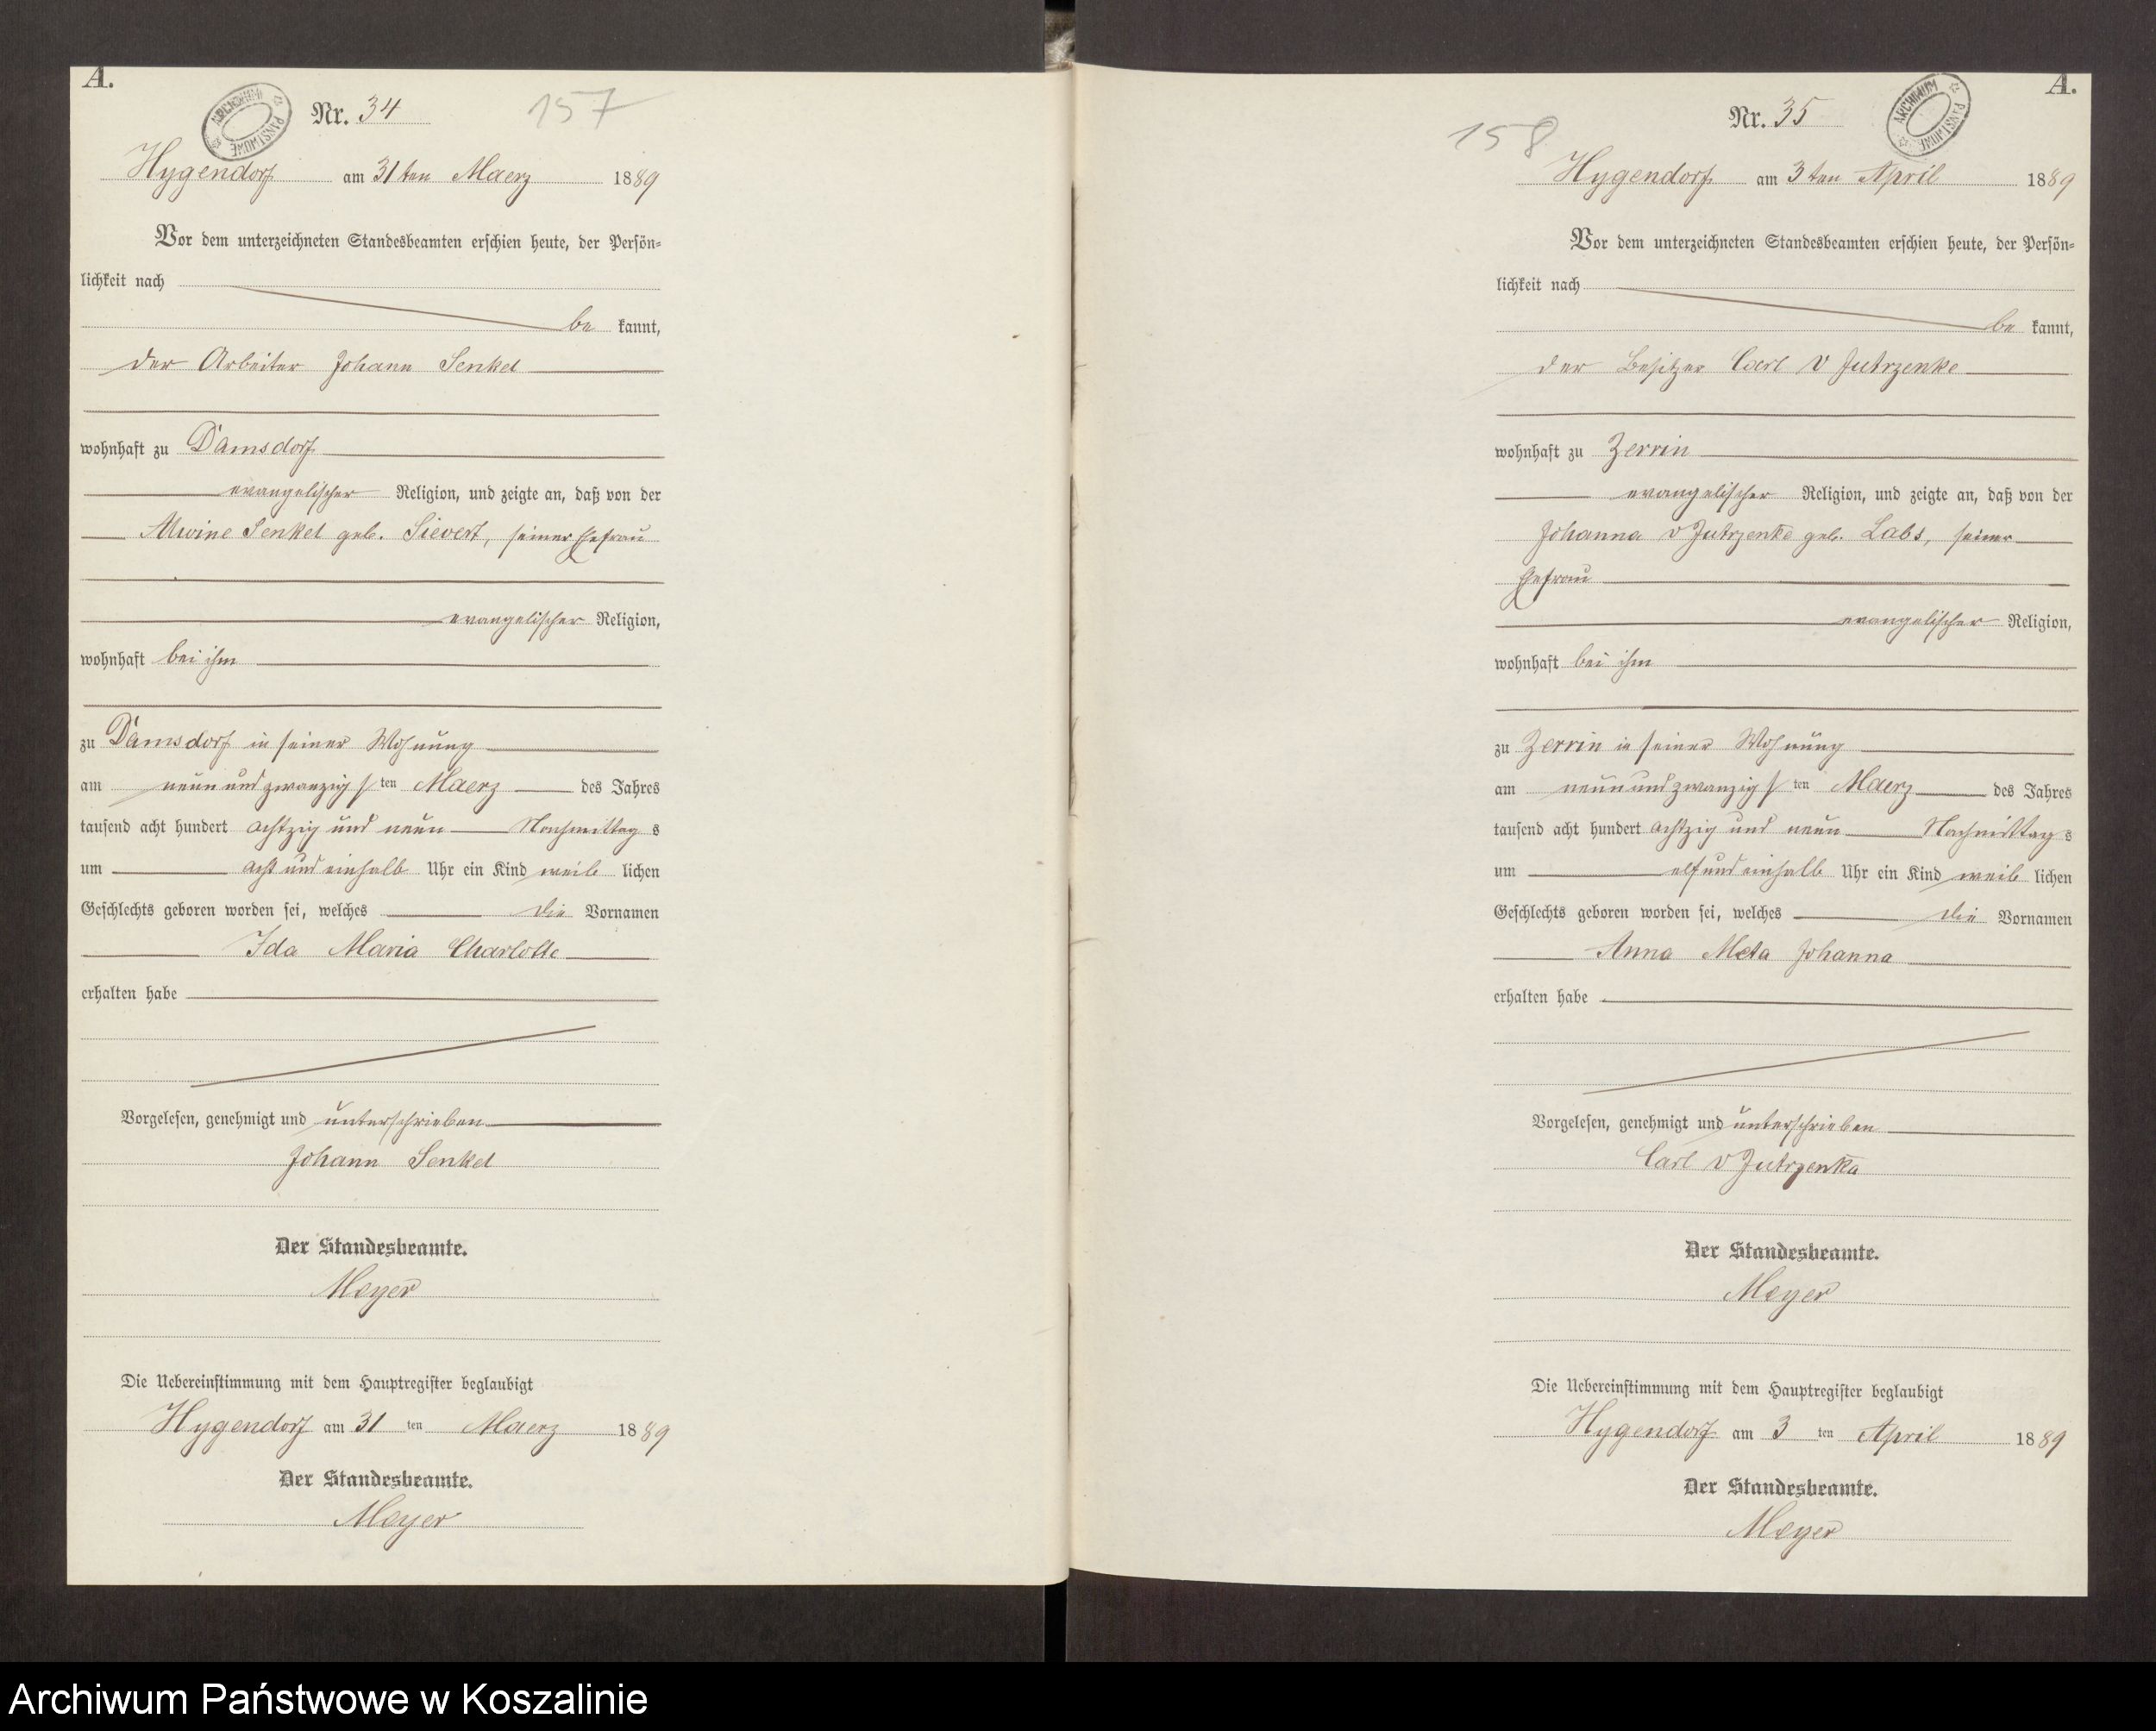 A.
ARCHIWUM PAŃSTWOWE
Nr. 34
157
Hygendorf am 31ten Maerz 1889
Vor dem unterzeichneten Standesbeamten erschien heute, der Persön=
lichkeit nach
be kannt,
der Arbeiter Johann Senkel
wohnhaft zu Damsdorf
evangelischer Religion, und zeigte an, daß von der
Alwine Senkel geb. Sievert, seiner Ehefrau
evangelischer Religion,
wohnhaft bei ihm
zu Damsdorf in seiner Wohnung
am neun und zwanzigsten Maerz des Jahres
tausend acht hundert achtzig und neun Nachmittags
um acht und einhalb Uhr ein Kind weiblichen
Geschlechts geboren worden sei, welches die Vornamen
Ida Maria Charlotte
erhalten habe
Vorgelesen, genehmigt und unterschrieben
Johann Senkel
Der Standesbeamte.
Meyer
Die Uebereinstimmung mit dem Hauptregister beglaubigt
Hygendorf am 31 ten Maerz 1889
Der Standesbeamte.
Meyer
A.
ARCHIWUM PAŃSTWOWE
Nr. 35
158
Hygendorf am 3ten April 1889
Vor dem unterzeichneten Standesbeamten erschien heute, der Persön=
lichkeit nach
be kannt,
der Besitzer Carl v Jutrzenke
wohnhaft zu Zerrin
evangelischer Religion, und zeigte an, daß von der
Johanna v Jutrzenke geb. Labs, seiner
Ehefrau
evangelischer Religion,
wohnhaft bei ihm
zu Zerrin in seiner Wohnung
am neun und zwanzigsten Maerz des Jahres
tausend acht hundert achtzig und neun Nachmittags
um elf und einhalb Uhr ein Kind weiblichen
Geschlechts geboren worden sei, welches die Vornamen
Anna Meta Johanna
erhalten habe
Vorgelesen, genehmigt und unterschrieben
Carl v Jutrzenka
Der Standesbeamte.
Meyer
Die Uebereinstimmung mit dem Hauptregister beglaubigt
Hygendorf am 3 ten April 1889
Der Standesbeamte.
Meyer
Archiwum Państwowe w Koszalinie